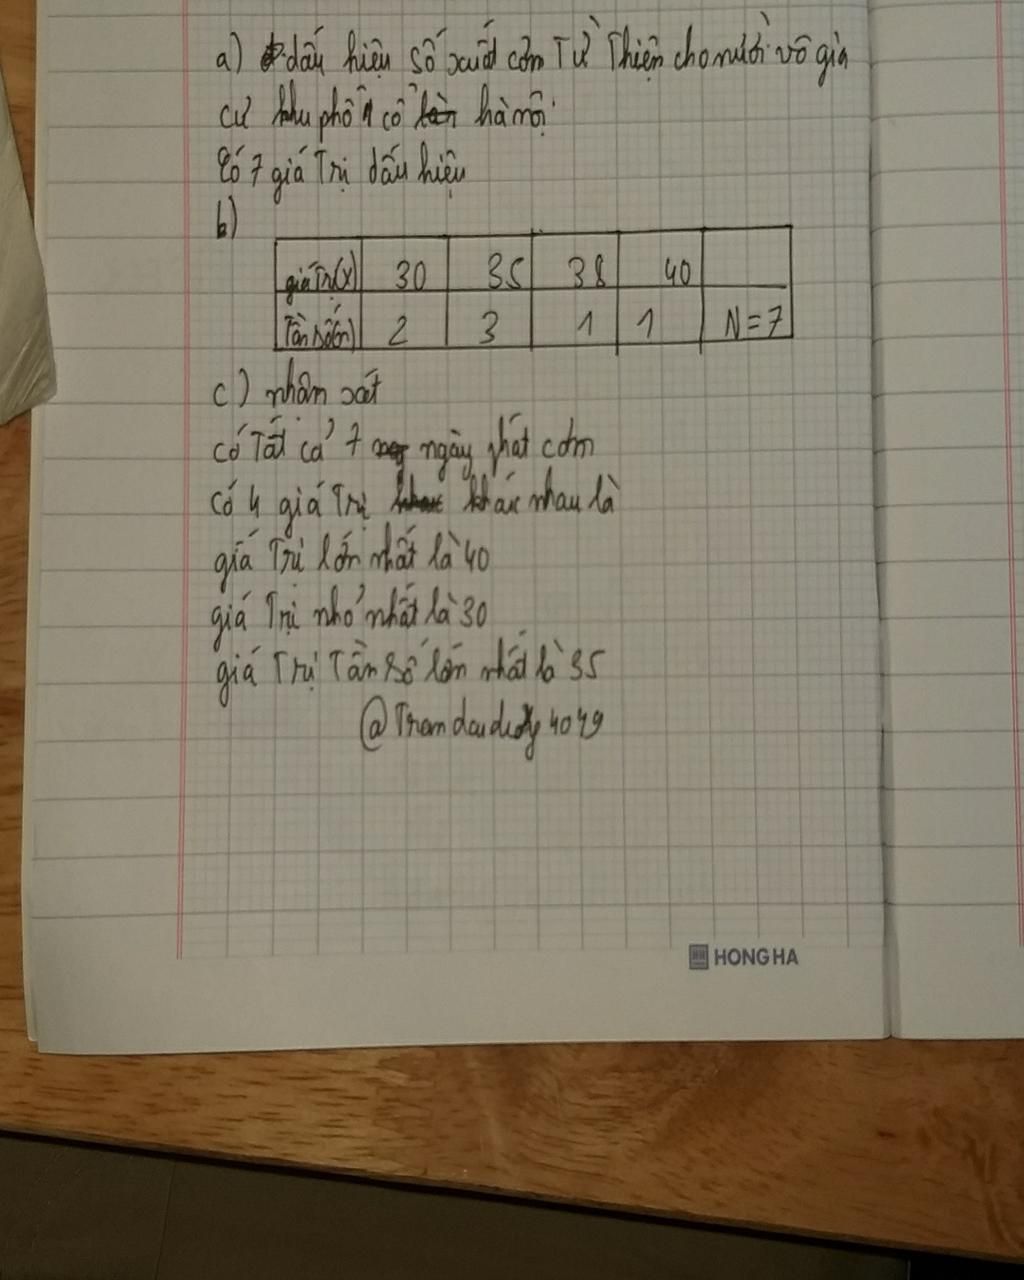 a) dấu hiệu số xuất cơm Từ Thiện cho nười vô gia
cư khu phố cổ hà nội
Có 7 giá Trị dấu hiệu
b)
giá Trị(x) 30 35 38 40
Tần số(n) 2 3 1 1 N=7
c) nhân xát
có Tất cả 7 ngày phát cơm
có 4 giá Trị khác nhau là
giá Trị lớn nhất là 40
giá Trị nhỏ nhất là 30
giá Trị Tần số lớn nhất là 35
HONG HA